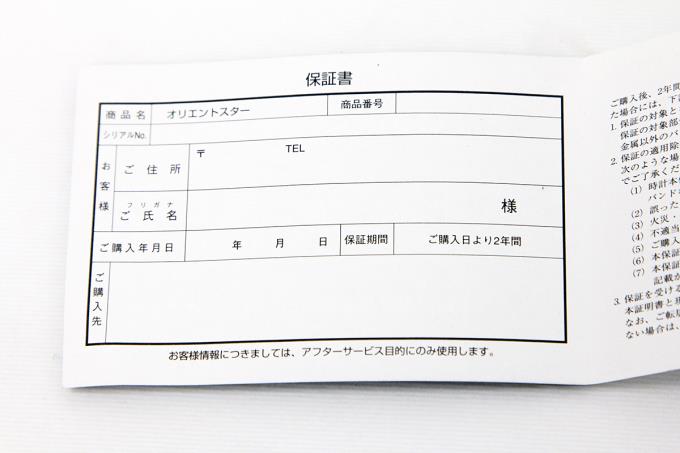 保証書
商品名 オリエントスター 商品番号
シリアルNo.
お客様
ご住所 〒 TEL
フリガナ
ご氏名 様
ご購入年月日 年 月 日 保証期間 ご購入日より2年間
ご購入先
お客様情報につきましては、アフターサービス目的にのみ使用します。
ご購入後、2年間
た場合には、下
1. 保証の対象と
保証の対象部
金属以外のバ
2. 保証の適用除
次のような場
でご了承くだ
(1) 時計本
バンド
(2) 誤った
(3) 火災・
(4) 不適当
(5) ご購入
(6) 本保証
(7) 本保証
記載が
3. 保証を受ける
本証明書と
なお、ご転居
ない場合は、